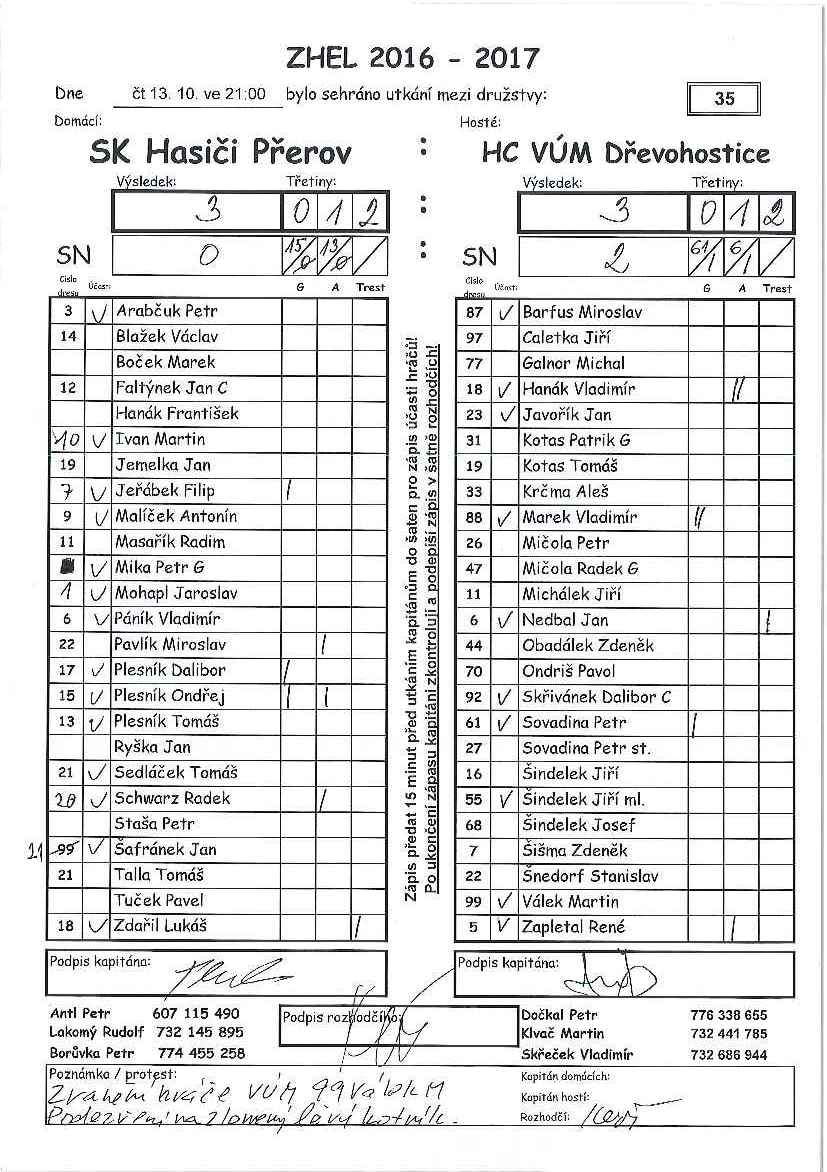 ZHEL 2016 - 2017
Dne čt 13. 10. ve 21:00 bylo sehráno utkání mezi družstvy: 35
Domácí: Hosté:
SK Hasiči Přerov : HC VÚM Dřevohostice
Výsledek: Třetiny: : Výsledek: Třetiny:
3 0 1 2 : 3 0 1 2
SN 0 15/0 13/0 / : SN 2 61/1 6/1 /
Číslo dresu Účast: G A Trest Číslo dresu Účast: G A Trest
3 V Arabčuk Petr 87 V Barfus Miroslav
14 Blažek Václav 97 Caletka Jiří
Boček Marek 77 Galnor Michal
12 Faltýnek Jan C 18 V Hanák Vladimír //
Hanák František 23 V Javořík Jan
10 V Ivan Martin 31 Kotas Patrik G
19 Jemelka Jan 19 Kotas Tomáš
7 V Jeřábek Filip / 33 Krčma Aleš
9 V Malíček Antonín 88 V Marek Vladimír //
11 Masařík Radim 26 Mičola Petr
V Mika Petr G 47 Mičola Radek G
1 V Mohapl Jaroslav 11 Michálek Jiří
6 V Páník Vladimír 6 V Nedbal Jan /
22 Pavlík Miroslav / 44 Obadálek Zdeněk
17 V Plesník Dalibor / 70 Ondriš Pavol
15 V Plesník Ondřej / / 92 V Skřivánek Dalibor C
13 V Plesník Tomáš 61 V Sovadina Petr /
Ryška Jan 27 Sovadina Petr st.
21 V Sedláček Tomáš 16 Šindelek Jiří
20 V Schwarz Radek / 55 V Šindelek Jiří ml.
Staša Petr 68 Šindelek Josef
11 99 V Šafránek Jan 7 Šišma Zdeněk
21 Talla Tomáš 22 Šnedorf Stanislav
Tuček Pavel 99 V Válek Martin
18 V Zdařil Lukáš / 5 V Zapletal René /
Zápis předat 15 minut před utkáním kapitánům do šaten pro zápis účasti hráčů!
Po ukončení zápasu kapitáni zkontrolují a podepíší zápis v šatně rozhodčích!
Podpis kapitána: Podpis kapitána:
Antl Petr 607 115 490 Podpis rozhodčího: Dočkal Petr 776 338 655
Lakomý Rudolf 732 145 895 Klvač Martin 732 441 785
Borůvka Petr 774 455 258 Skřeček Vladimír 732 686 944
Poznámka / protest: Kapitán domácích:
Zranění hráče VÚM 99 Válek M Kapitán hostí:
Podezření na zlomený levý kotník. Rozhodčí: